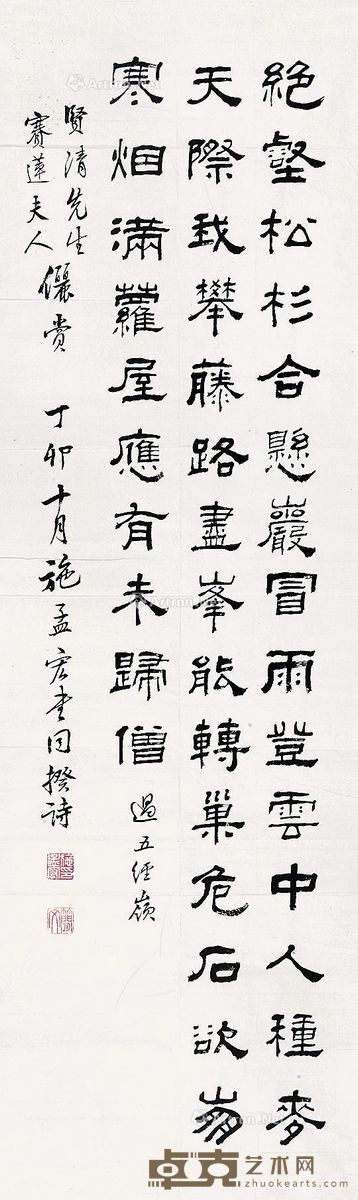 絕壑松杉合懸巖冒雨登雲中人種麥
天際我攀藤路盡峯能轉巢危石欲崩
寒烟滿蘿屋應有未歸僧 過五經嶺
賢清先生
賽蓮夫人
儷賞 丁卯十月施孟宏書同揆詩
卓克艺术网
zhuokearts.com